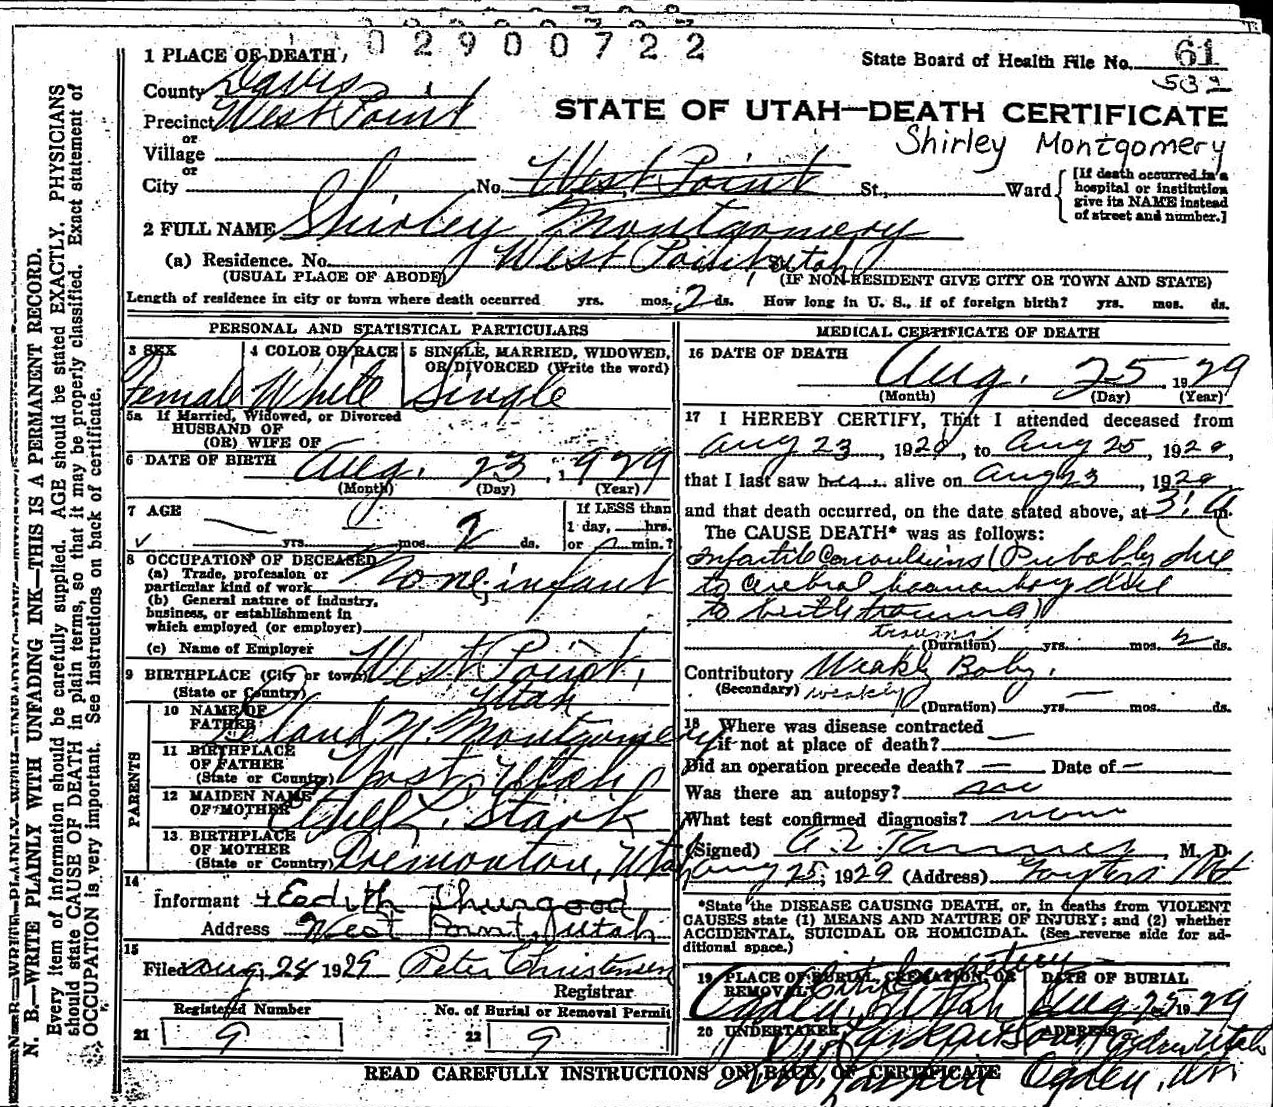 02900722
1 PLACE OF DEATH
State Board of Health File No. 61
532
County Davis
Precinct West Point
STATE OF UTAH—DEATH CERTIFICATE
or
Village
Shirley Montgomery
or
City No. West Point St., Ward
[If death occurred in a hospital or institution give its NAME instead of street and number.]
2 FULL NAME Shirley Montgomery
(a) Residence. No. West Point, Utah
(USUAL PLACE OF ABODE) (IF NON-RESIDENT GIVE CITY OR TOWN AND STATE)
Length of residence in city or town where death occurred yrs. mos. 2 ds. How long in U. S., if of foreign birth? yrs. mos. ds.
PERSONAL AND STATISTICAL PARTICULARS
3 SEX 4 COLOR OR RACE 5 SINGLE, MARRIED, WIDOWED, OR DIVORCED (Write the word)
Female White Single
5a If Married, Widowed, or Divorced
HUSBAND OF
(OR) WIFE OF
6 DATE OF BIRTH Aug. 23, 1929
(Month) (Day) (Year)
7 AGE If LESS than
1 day, hrs.
yrs. mos. 2 ds. or min.?
8 OCCUPATION OF DECEASED
(a) Trade, profession or
particular kind of work None-infant
(b) General nature of industry,
business, or establishment in
which employed (or employer)
(c) Name of Employer
9 BIRTHPLACE (City or town) West Point,
(State or Country) Utah
PARENTS
10 NAME OF
FATHER Leland N. Montgomery
11 BIRTHPLACE
OF FATHER
(State or Country) Yost, Utah
12 MAIDEN NAME
OF MOTHER Ethel L. Stark
13 BIRTHPLACE
OF MOTHER
(State or Country) Tremonton, Utah
14
Informant Eedith Thurgood
Address West Point, Utah
15
Filed Aug, 24 1929 Peter Christensen
Registrar
Registered Number No. of Burial or Removal Permit
21 9 22 9
MEDICAL CERTIFICATE OF DEATH
16 DATE OF DEATH
Aug. 25, 1929
(Month) (Day) (Year)
17 I HEREBY CERTIFY, That I attended deceased from
Aug 23, 1929, to Aug 25, 1929,
that I last saw her alive on Aug 23, 1929
and that death occurred, on the date stated above, at 3: A m.
The CAUSE DEATH* was as follows:
Infantile Convulsions (Probably due
to Cerebral hemorrhage due
to birth trauma)
trauma
(Duration) yrs. mos. 2 ds.
Contributory Weakly Baby.
(Secondary) weakly
(Duration) yrs. mos. ds.
18 Where was disease contracted
if not at place of death?
Did an operation precede death? — Date of —
Was there an autopsy? no
What test confirmed diagnosis? none
(Signed) A. Z. Tanner M. D.
Aug 25, 1929 (Address) Layton Ut
*State the DISEASE CAUSING DEATH, or, in deaths from VIOLENT
CAUSES state (1) MEANS AND NATURE OF INJURY; and (2) whether
ACCIDENTAL, SUICIDAL OR HOMICIDAL. (See reverse side for ad-
ditional space.)
19 PLACE OF BURIAL, CREMATION, OR REMOVAL DATE OF BURIAL
Ogden, Utah Aug 25, 1929
20 UNDERTAKER ADDRESS
Ogden, Utah
Ogden, Ut.
READ CAREFULLY INSTRUCTIONS ON BACK OF CERTIFICATE
N. B.—WRITE PLAINLY WITH UNFADING INK—THIS IS A PERMANENT RECORD.
Every item of information should be carefully supplied. AGE should be stated EXACTLY. PHYSICIANS
should state CAUSE OF DEATH in plain terms, so that it may be properly classified. Exact statement of
OCCUPATION is very important. See Instructions on back of certificate.